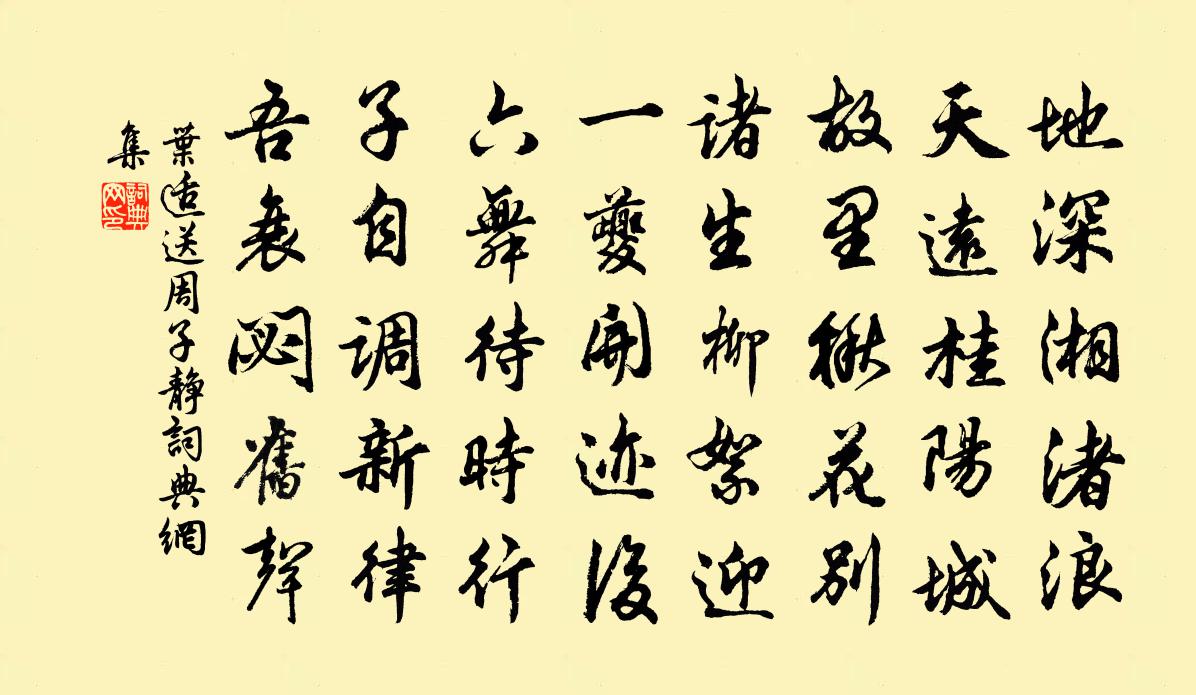 地深湘渚浪
天遠桂陽城
故里楸花別
諸生柳絮迎
一夔開迹後
六舞待時行
子自調新律
吾衰閟舊聲
葉適送周子靜詞典網
集
詞典网印